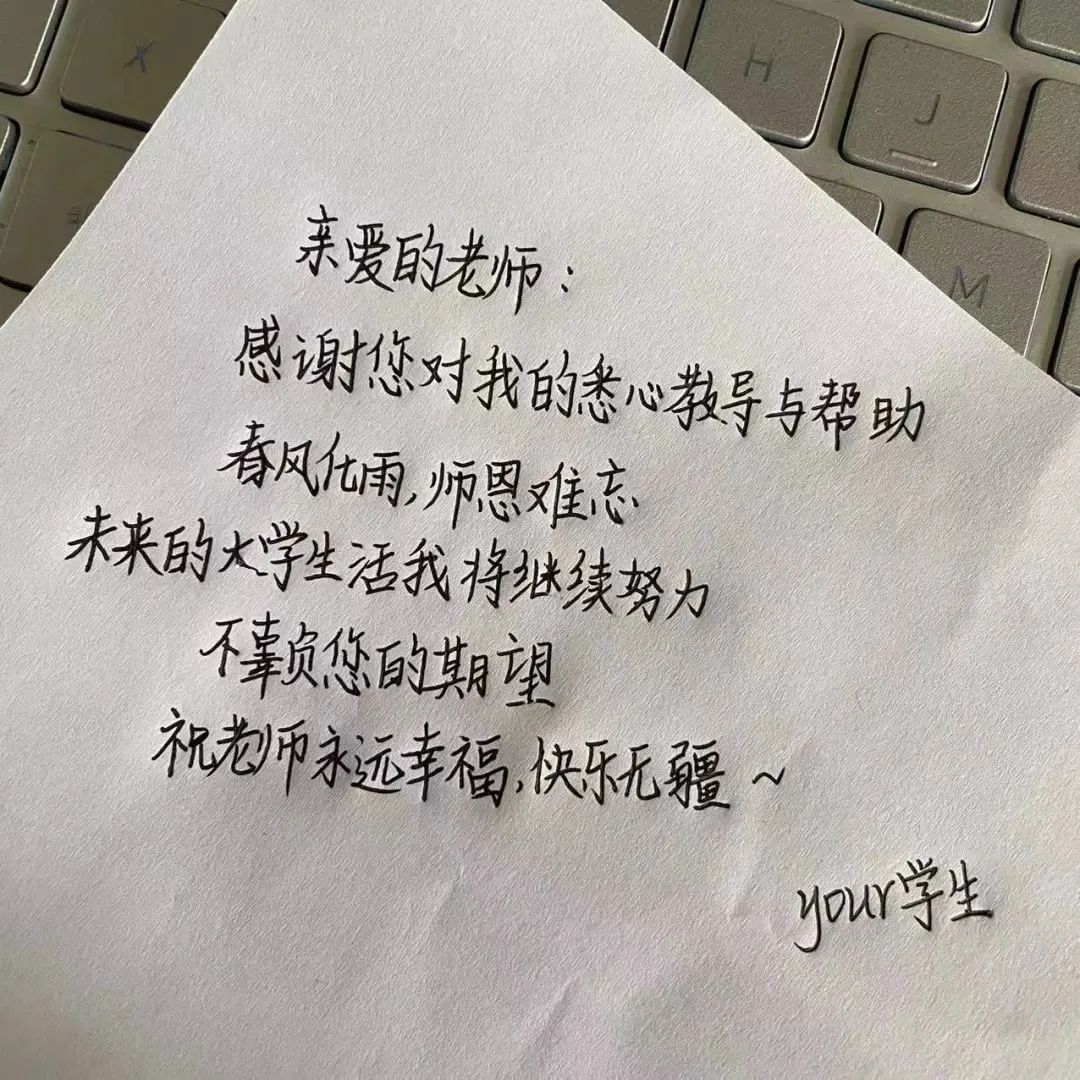 X
H
J
M
亲爱的老师：
感谢您对我的悉心教导与帮助
春风化雨,师恩难忘
未来的大学生活我将继续努力
不辜负您的期望
祝老师永远幸福,快乐无疆~
your学生